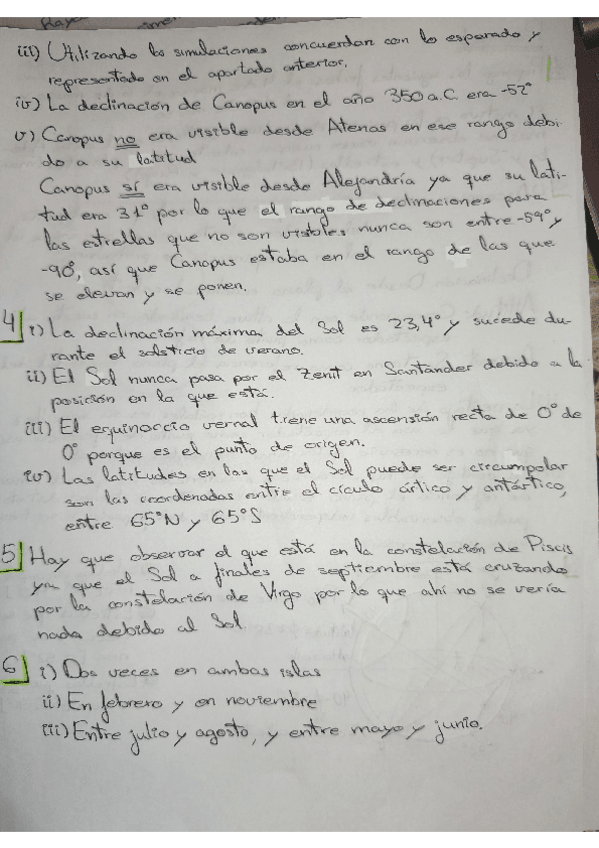 iii) Utilizando las simulaciones concuerdan con lo esperado y
representado en el apartado anterior.
iv) La declinación de Canopus en el año 350 a.C. era -52°
v) Canopus no era visible desde Atenas en ese rango debi-
do a su latitud
Canopus sí era visible desde Alejandría ya que su lati-
tud era 31° por lo que el rango de declinaciones para
las estrellas que no son visibles nunca son entre -59° y
-90°, así que Canopus estaba en el rango de las que
se elevan y se ponen.
4 i) La declinación máxima del Sol es 23,4° y sucede du-
rante el solsticio de verano.
ii) El Sol nunca pasa por el Zenit en Santander debido a la
posición en la que está.
iii) El equinoccio vernal tiene una ascensión recta de 0° de
0° porque es el punto de origen.
iv) Las latitudes en las que el Sol puede ser circumpolar
son las coordenadas entre el círculo ártico y antártico,
entre 65°N y 65°S
5 Hay que observar el que está en la constelación de Piscis
ya que el Sol a finales de septiembre está cruzando
por la constelación de Virgo por lo que ahí no se vería
nada debido al Sol.
6 i) Dos veces en ambas islas
ii) En febrero y en noviembre
iii) Entre julio y agosto, y entre mayo y junio.